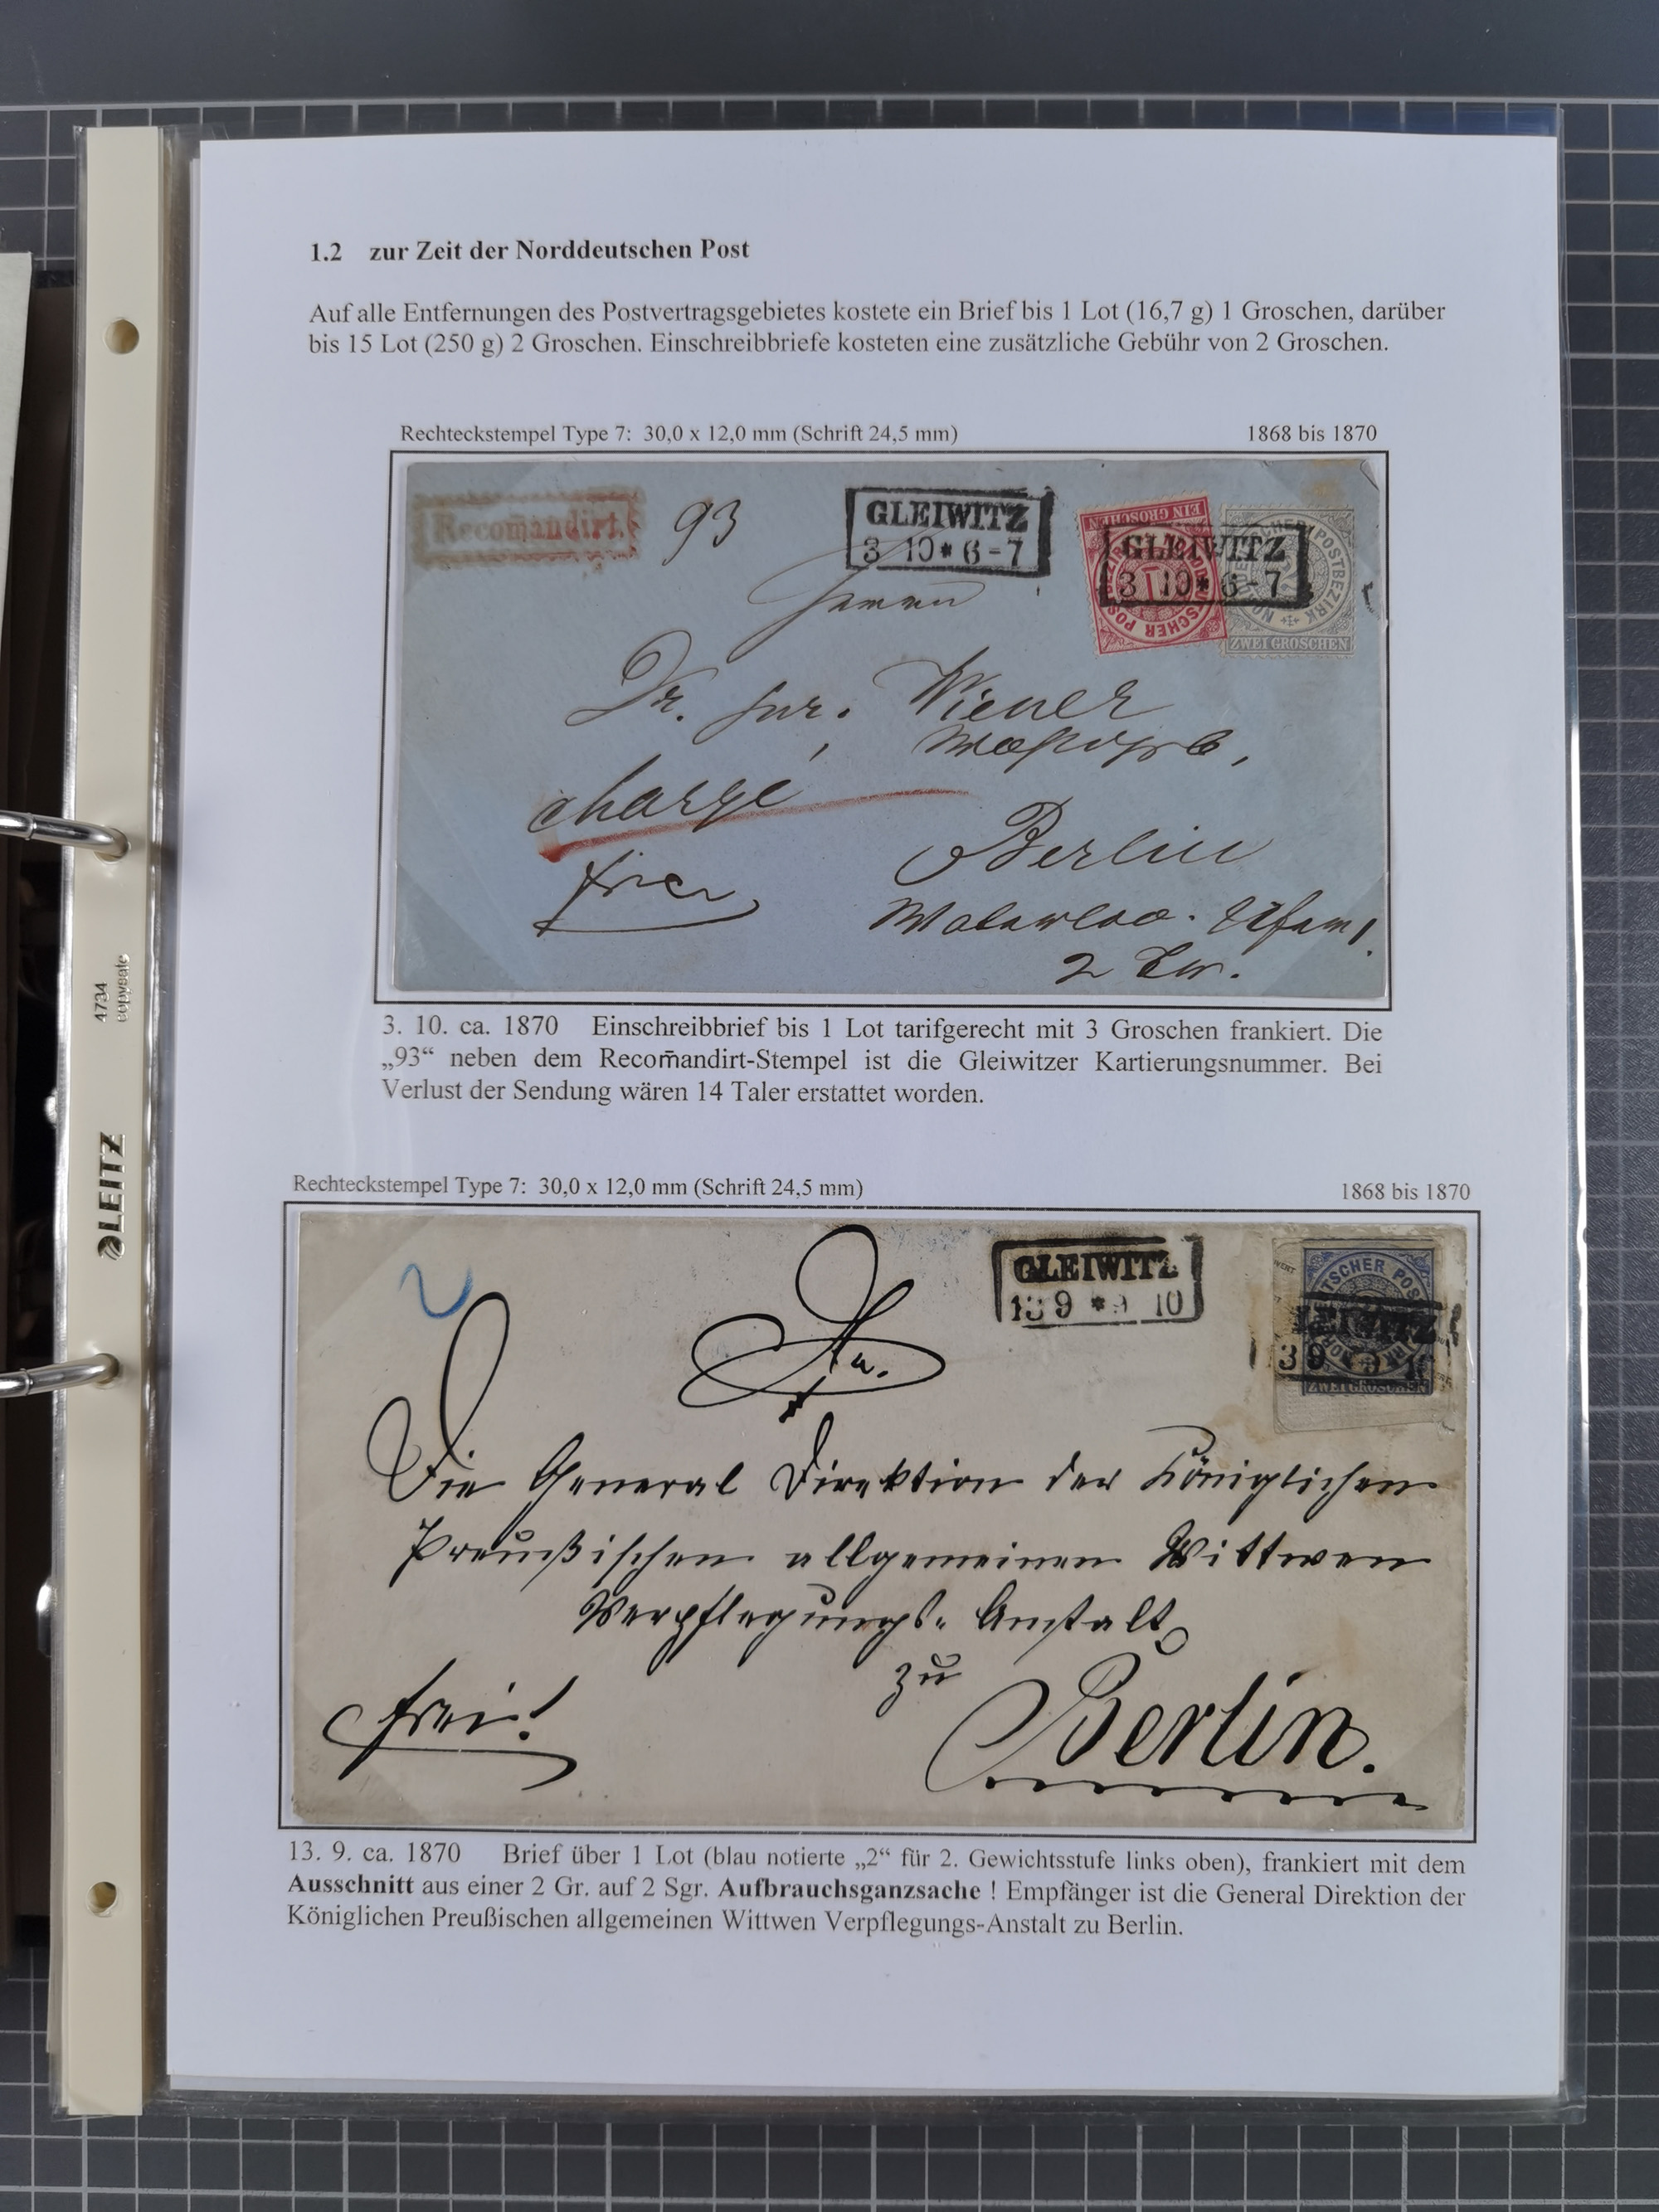 1.2 zur Zeit der Norddeutschen Post
Auf alle Entfernungen des Postvertragsgebietes kostete ein Brief bis 1 Lot (16,7 g) 1 Groschen, darüber
bis 15 Lot (250 g) 2 Groschen. Einschreibbriefe kosteten eine zusätzliche Gebühr von 2 Groschen.
Rechteckstempel Type 7: 30,0 x 12,0 mm (Schrift 24,5 mm) 1868 bis 1870
Recom̄andirt.
93
GLEIWITZ
3 10 * 6-7
EIN GROSCHEN
GLEIWITZ
3 10 * 6-7
POSTBEZIRK
ZWEI GROSCHEN
Herrn
Dr. jur. Wiener
chargé
Berlin
frei
2 Tr.
3. 10. ca. 1870 Einschreibbrief bis 1 Lot tarifgerecht mit 3 Groschen frankiert. Die
„93“ neben dem Recom̄andirt-Stempel ist die Gleiwitzer Kartierungsnummer. Bei
Verlust der Sendung wären 14 Taler erstattet worden.
Rechteckstempel Type 7: 30,0 x 12,0 mm (Schrift 24,5 mm) 1868 bis 1870
2
An.
GLEIWITZ
13 9 * 9 10
ZWEI GROSCHEN
Die General Direktion der Königlichen
Preußischen allgemeinen Wittwen
Verpflegungs-Anstalt
zu
frei!
Berlin.
13. 9. ca. 1870 Brief über 1 Lot (blau notierte „2“ für 2. Gewichtsstufe links oben), frankiert mit dem
Ausschnitt aus einer 2 Gr. auf 2 Sgr. Aufbrauchsganzsache ! Empfänger ist die General Direktion der
Königlichen Preußischen allgemeinen Wittwen Verpflegungs-Anstalt zu Berlin.
4734
copysafe
LEITZ